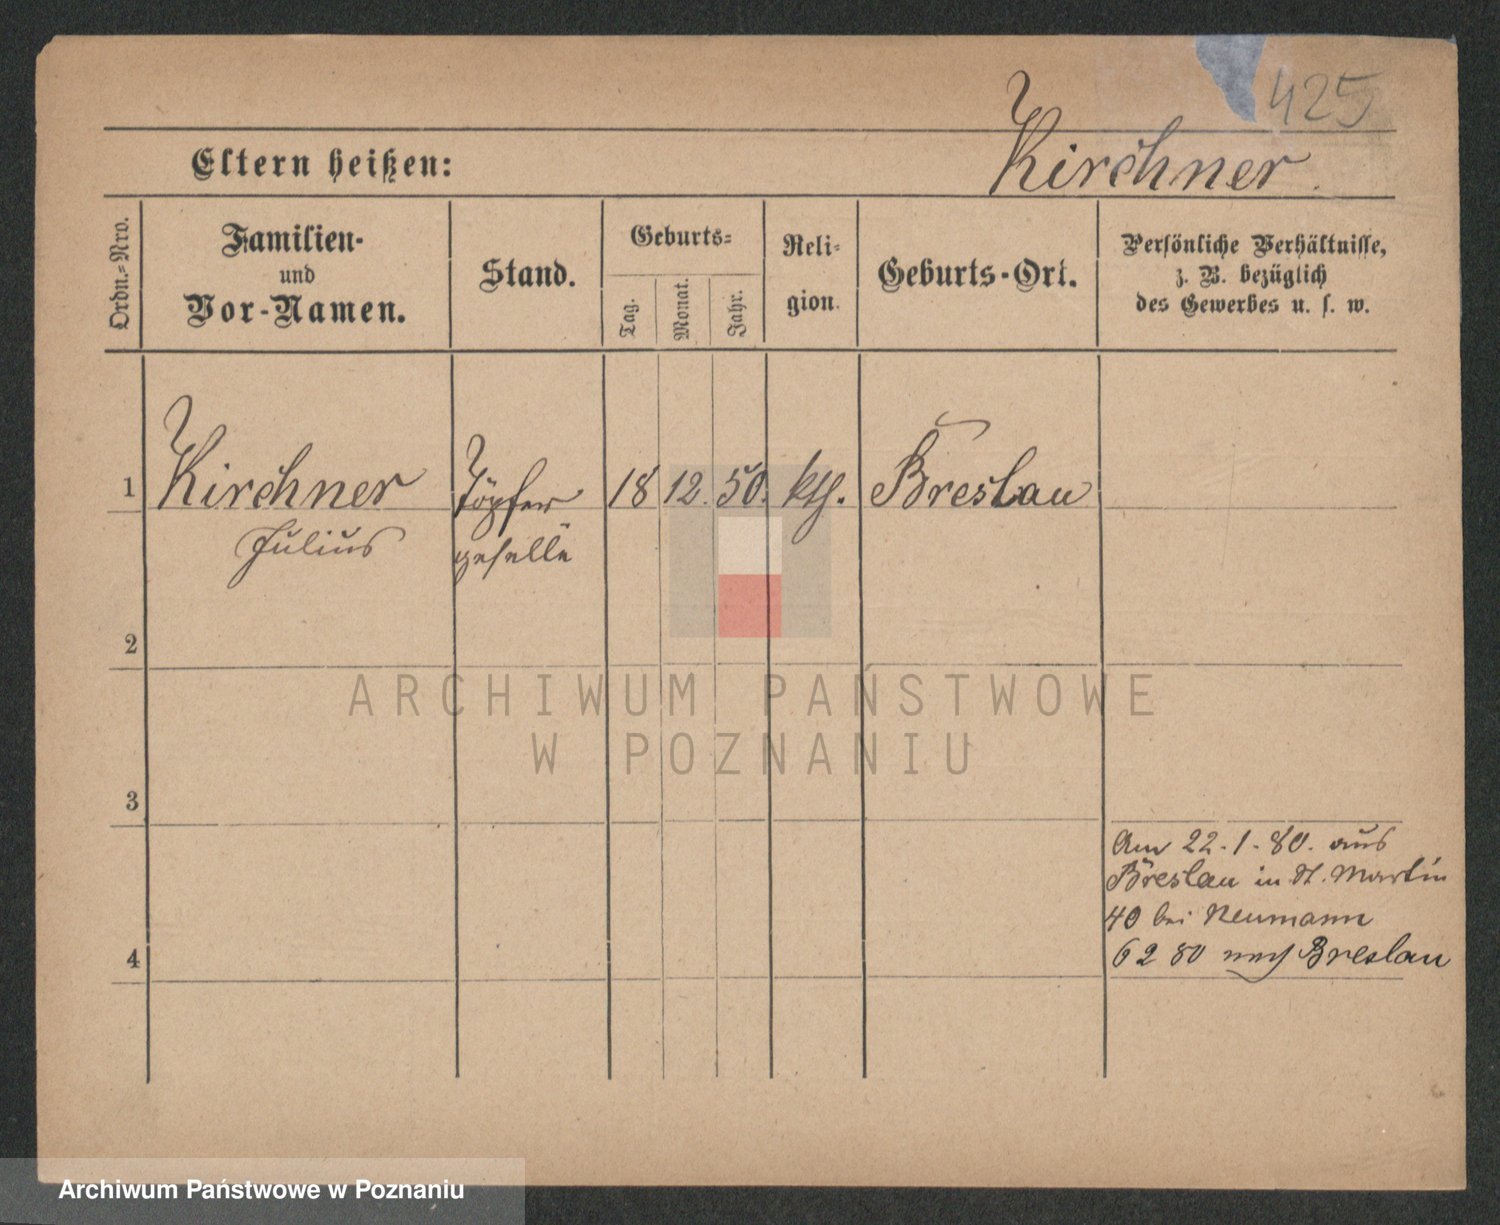 425
Kirchner
Eltern heißen:
Ordn.=Nro.
Familien-
und
Vor-Namen.
Stand.
Geburts=
Tag.
Monat.
Jahr.
Reli-
gion.
Geburts-Ort.
Persönliche Verhältnisse,
z. B. bezüglich
des Gewerbes u. s. w.
1 Kirchner Töpfer 18 12. 50. kth. Breslau
Julius geselle
2
3
Am 22.1.80. aus
Breslau in St. Martin
40 bei Neumann
4
6 2 80 nach Breslau
ARCHIWUM PAŃSTWOWE
W POZNANIU
Archiwum Państwowe w Poznaniu